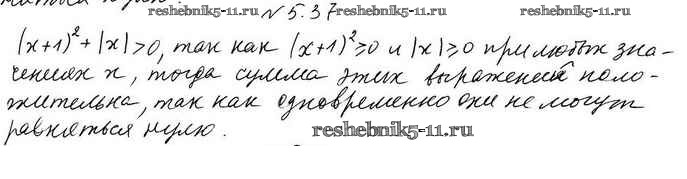 reshebnik5-11.ru
№ 5.37
(x+1)² + |x| > 0, так как (x+1)² ≥ 0 и |x| ≥ 0 при любых зна-
чениях x, тогда сумма этих выражений поло-
жительна, так как одновременно они не могут
равняться нулю.
reshebnik5-11.ru